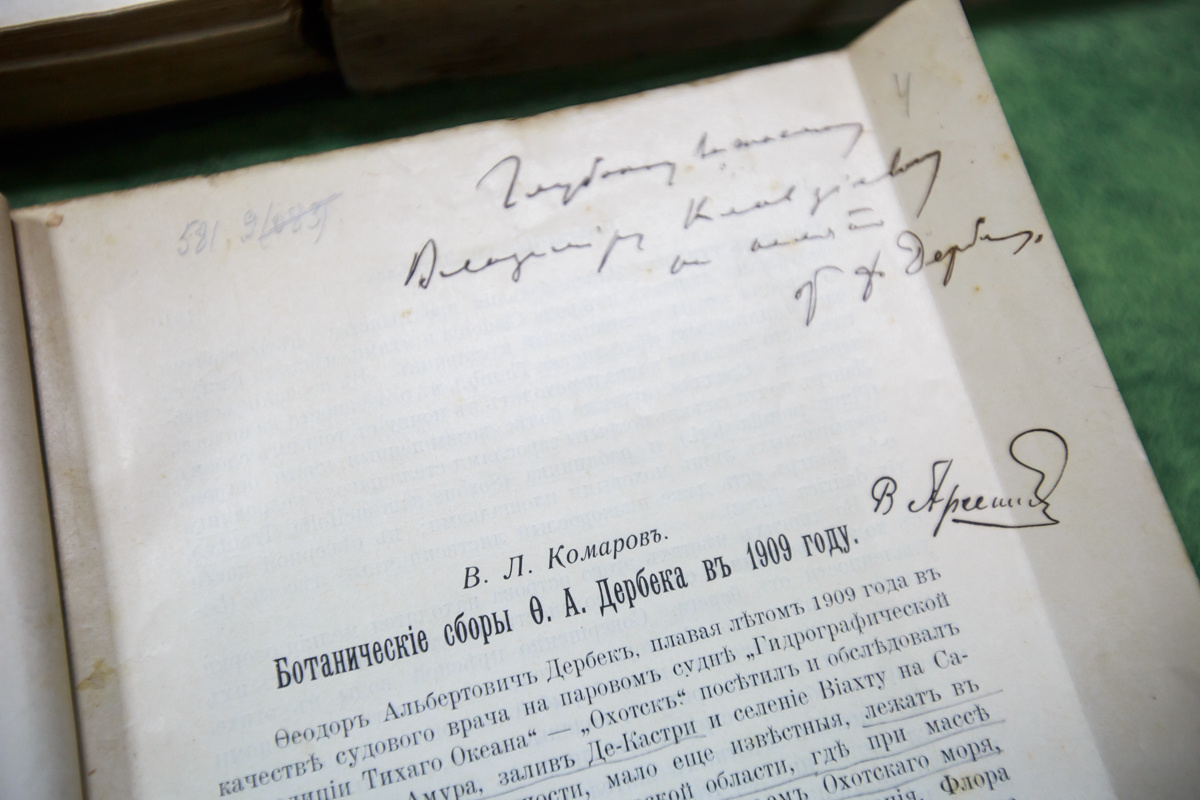 4
581.9(085)
Владиміру Клавдіевичу
Дербекъ
В Арсеньев
В. Л. Комаровъ.
Ботаническіе сборы Ѳ. А. Дербека въ 1909 году.
Ѳеодоръ Альбертовичъ Дербекъ, плавая лѣтомъ 1909 года въ
качествѣ судового врача на паровомъ суднѣ „Гидрографической
Тихаго Океана“ — „Охотскъ“ посѣтилъ и обслѣдовалъ
Амура, заливъ Де-Кастри и селеніе Віахту на Са-
мало еще извѣстныя, лежатъ въ
области, гдѣ при массѣ
Охотскаго моря,
Флора